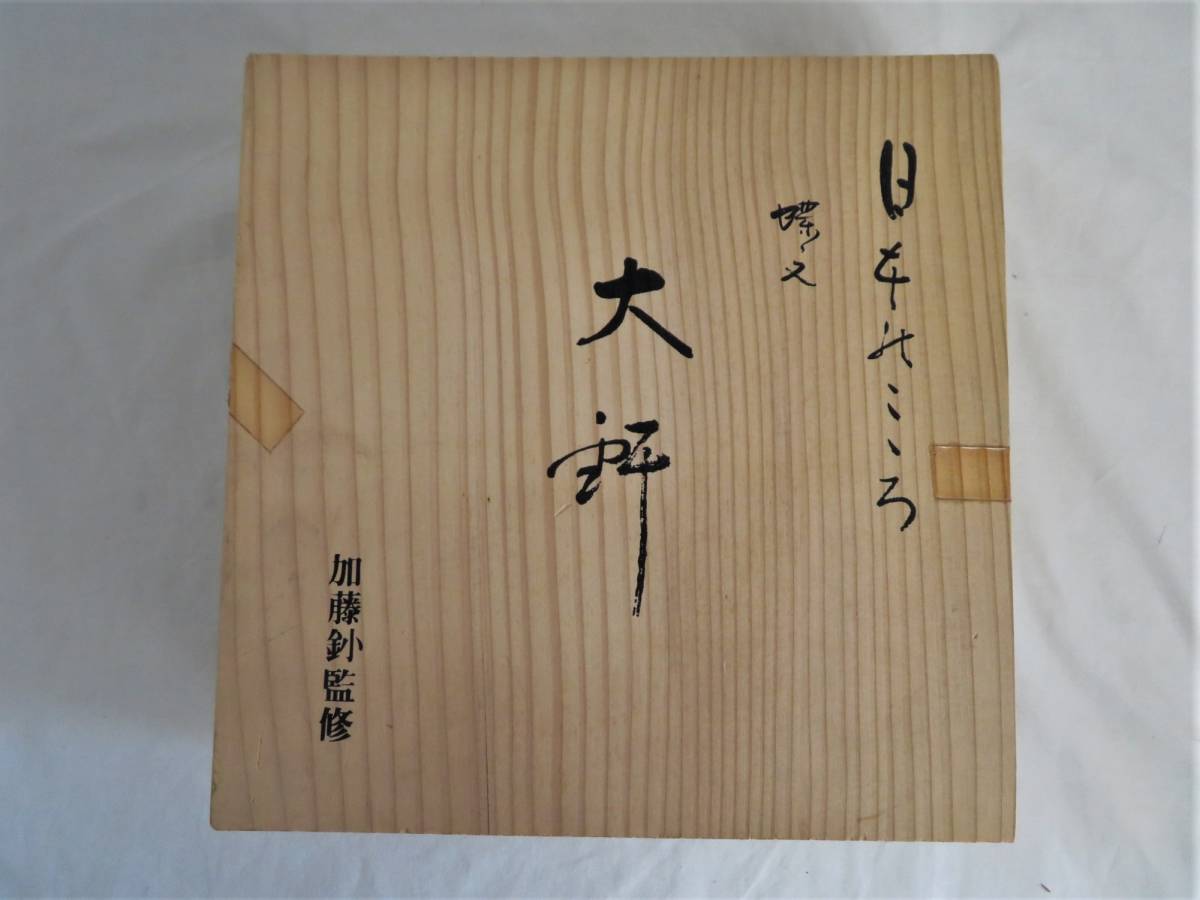 日本のこころ
蝶文
大鉢
加藤釥監修